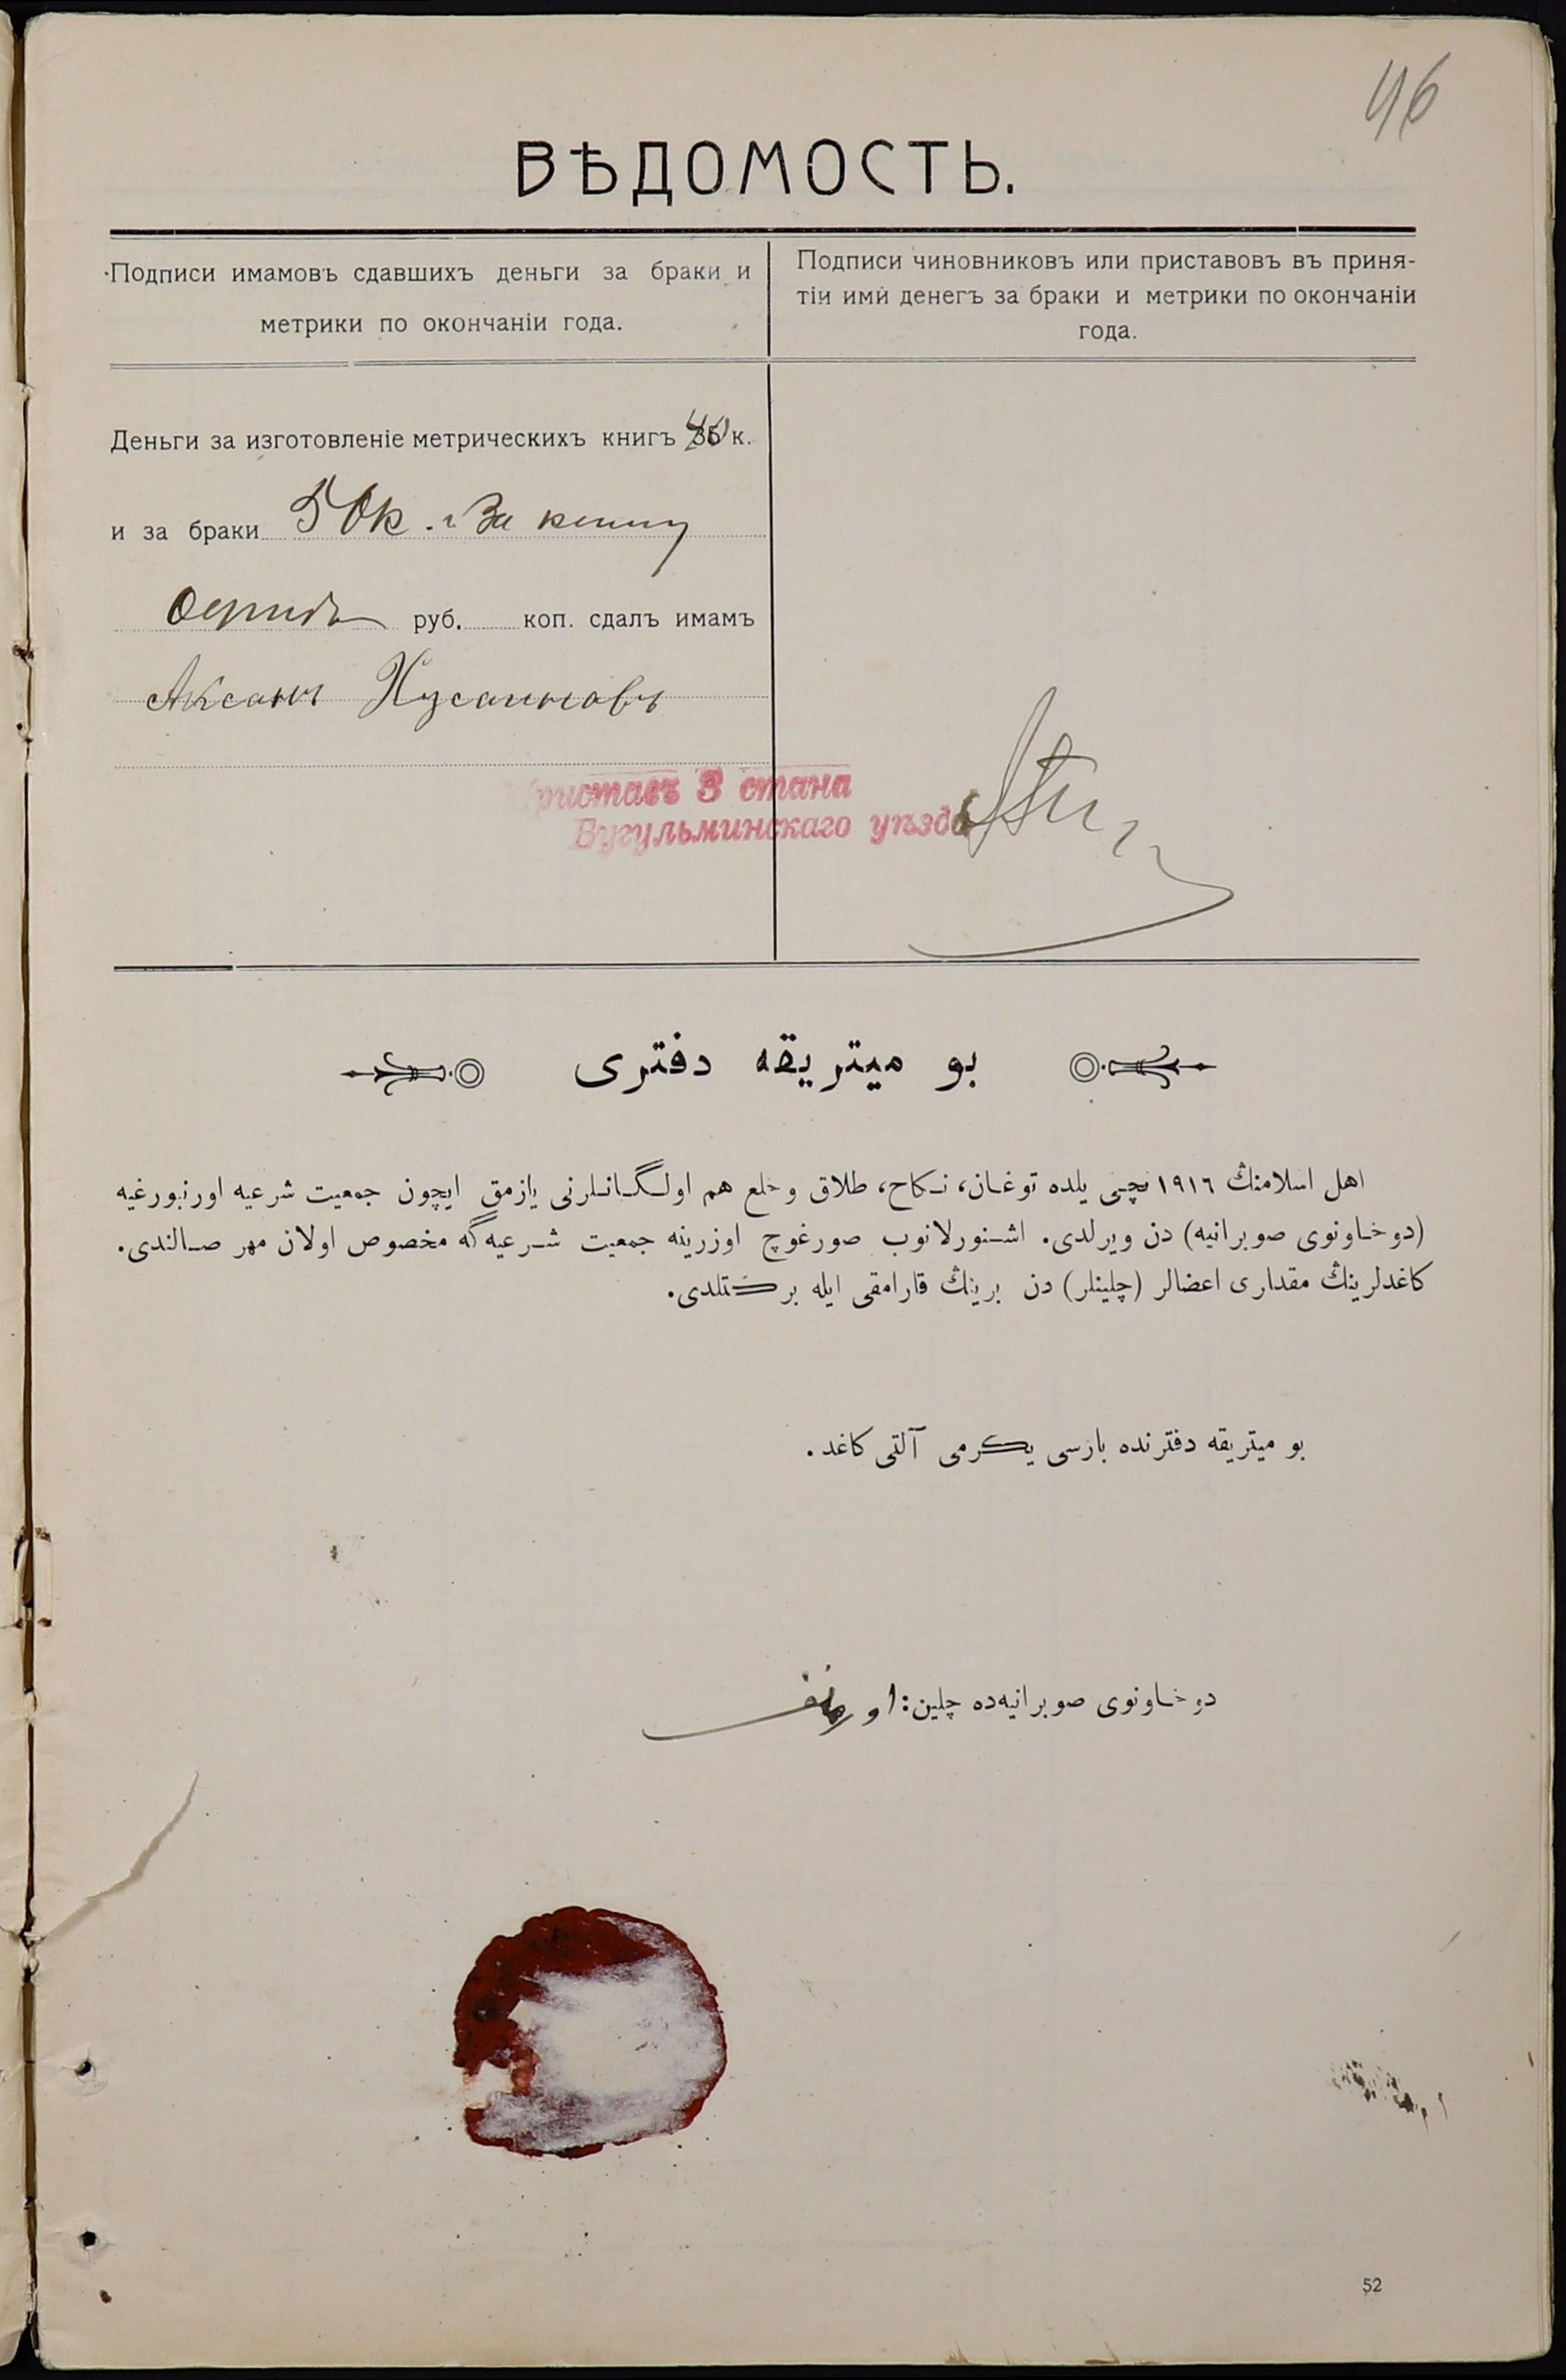 46
ВѢДОМОСТЬ.
Подписи имамовъ сдавшихъ деньги за браки и
метрики по окончаніи года.
Подписи чиновниковъ или приставовъ въ приня-
тіи ими денегъ за браки и метрики по окончаніи
года.
Деньги за изготовленіе метрическихъ книгъ 40 к.
и за браки 50к. За книгу
руб. коп. сдалъ имамъ
Аксанъ Хусаиновъ
Приставъ 3 стана
Бугульминскаго уѣзда
بو میتریقه دفتری
اهل اسلامنڭ ١٩١٦ نچـی یلده توغـان، نـکاح، طلاق و خلع هم اولـگـانـلرنی یازمق ایچون جمعیت شرعیه اورنبورغیه
(دوخـاونوی صوبرانیه) دن ویرلدی. اشـنورلانوب صورغوچ اوزرینه جمعیت شـرعیه گه مخصوص اولان مهر صـالندی.
کاغدلرینڭ مقداری اعضالر (چلینلر) دن برینڭ قارامقی ایله برکتلدی.
بو میتریقه دفترنده بارسی یکرمی آلتی کاغد.
دوخـاونوی صوبرانیه‌ده چلین:
52